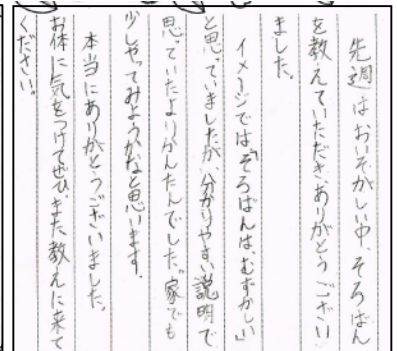 先週はおいそがしい中、そろばん
を教えていただきありがとうござい
ました。
イメージでは「そろばんは、むずかしい」
と思っていましたが、分かりやすい説明で
思っていたよりかんたんでした。家でも
少しやってみようかなと思います。
本当にありがとうございました。
お体に気をつけてぜひまた教えに来て
ください。